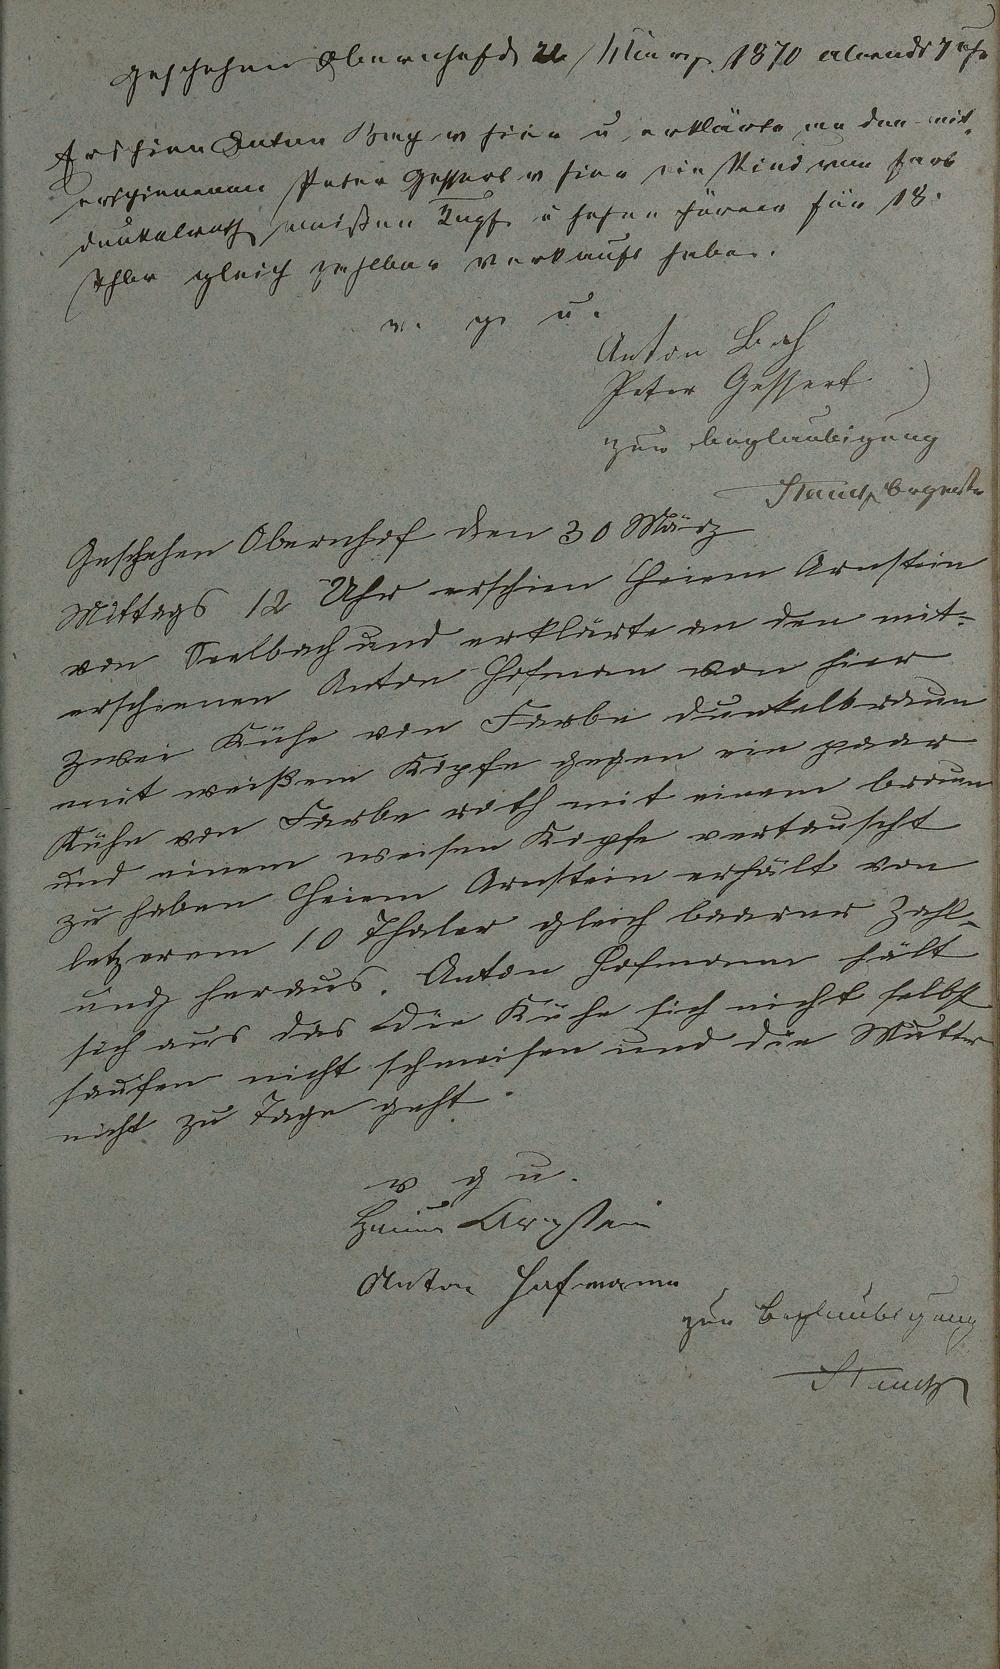 Geschehen Obernhof d 22 März 1870 abends 7 Uhr
Erschien Anton Bach v hier u erklärte an den mit
erschienenen Peter Gessert v hier ein Rind von Farb
dunkelroth weißen Kopf u hohen Hörner für 18
Thlr gleich zahlbar verkauft haben.
v. g. u.
Anton Bach
Peter Gessert
zur Beglaubigung
Geschehen Obernhof den 30 März
Mittags 12 Uhr erschien Heiem Arnstein
von Seelbach und erklärte an den mit=
erschienenen Anton Hofman von hier
zwei Kühe von Farbe dunkelbraun
mit weißem Kopfe gegen ein paar
Kühe von Farbe roth mit einem braun
und einem weisen Kopfe vertauscht
zu haben Heiem Arnstein erhält von
letzerem 10 Thaler gleich baarer Zahl=
ung heraus. Anton Hofmann hält
sich aus das die Kühe sich nicht selbst
saufen nicht schmeisen und die Mutter
nicht zu Tage geht.
v g u.
Heium Arnstein
Anton Hofmann
zur Beglaubigung